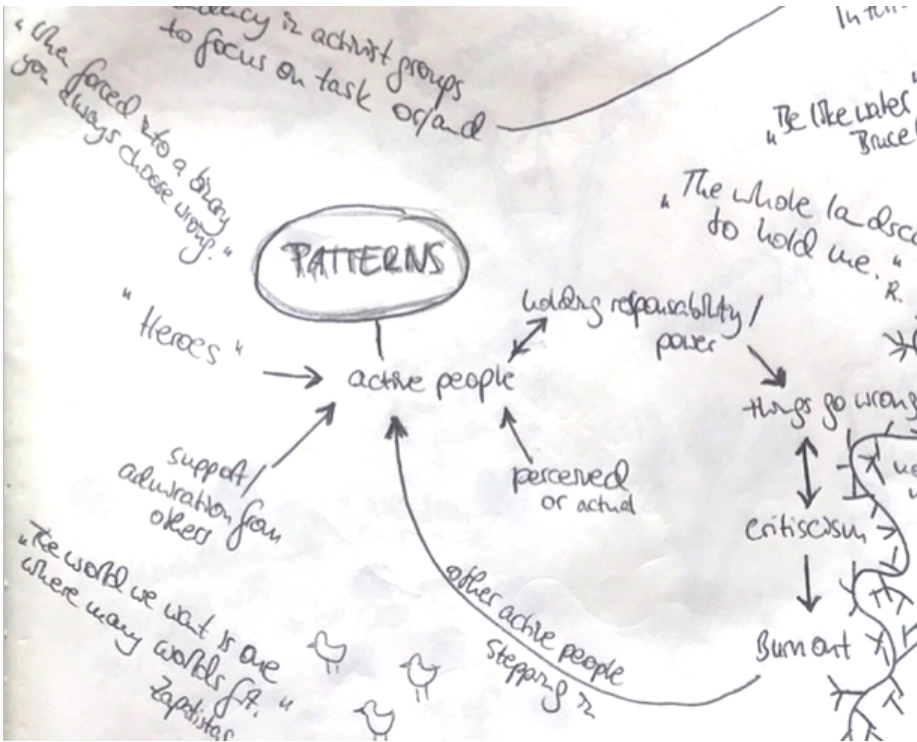 in activist groups
to focus on task or/and
"When forced into a binary
you always choose wrong."
"Be like water"
Bruce
"The whole
to hold me."
R.
PATTERNS
"Heroes"
active people
holding responsability /
power
things go wrong
support /
admiration from
others
perceived
or actual
critiscism
Burn out
other active people
stepping in
"The world we want is one
where many worlds fit."
Zapatistas